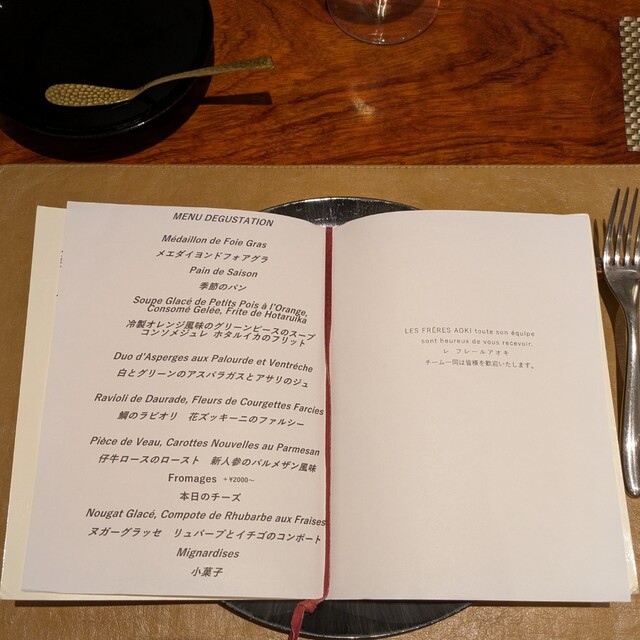 MENU DEGUSTATION
Médaillon de Foie Gras
メエダイヨンドフォアグラ
Pain de Saison
季節のパン
Soupe Glacé de Petits Pois à l'Orange,
Consomé Gelée, Frite de Hotaruika
冷製オレンジ風味のグリーンピースのスープ
コンソメジュレ ホタルイカのフリット
Duo d'Asperges aux Palourde et Ventréche
白とグリーンのアスパラガスとアサリのジュ
Ravioli de Daurade, Fleurs de Courgettes Farcies
鯛のラビオリ 花ズッキーニのファルシー
Pièce de Veau, Carottes Nouvelles au Parmesan
仔牛ロースのロースト 新人参のパルメザン風味
Fromages +¥2000~
本日のチーズ
Nougat Glacé, Compote de Rhubarbe aux Fraises
ヌガーグラッセ リュバーブとイチゴのコンポート
Mignardises
小菓子
LES FRÈRES AOKI toute son équipe
sont heureux de vous recevoir.
レ フレールアオキ
チーム一同は皆様を歓迎いたします。